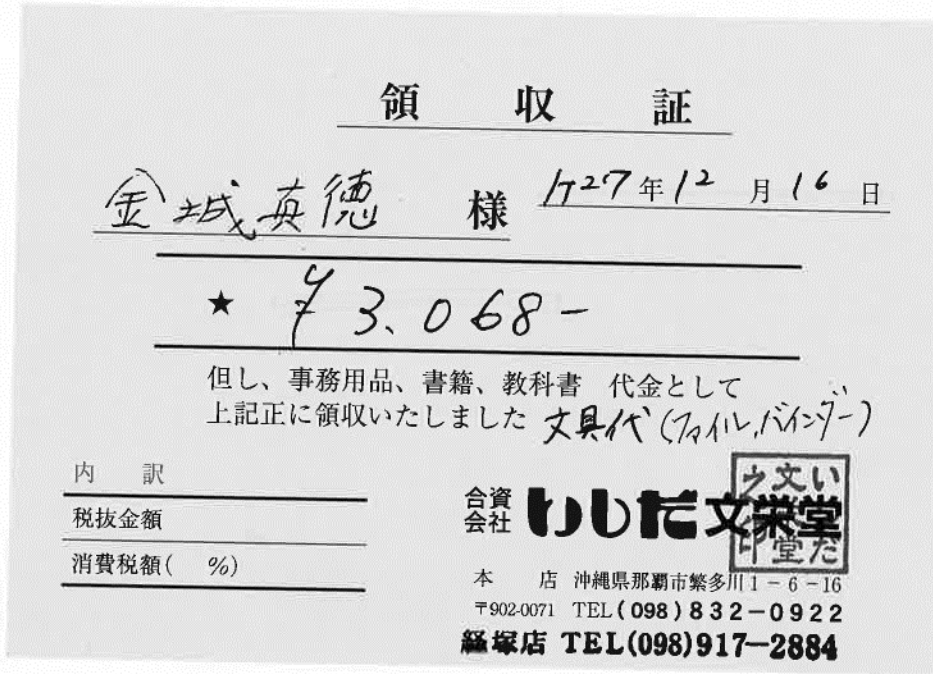 領収証
金城真徳 様
H27年12月16日
★ ¥3.068-
但し、事務用品、書籍、教科書 代金として
上記正に領収いたしました 文具代(ファイル,バインダー)
内 訳
税抜金額
消費税額( %)
合資会社 いしだ文栄堂
いしだ文栄堂之印
本 店 沖縄県那覇市繁多川1-6-16
〒902-0071 TEL(098)832-0922
経塚店 TEL(098)917-2884